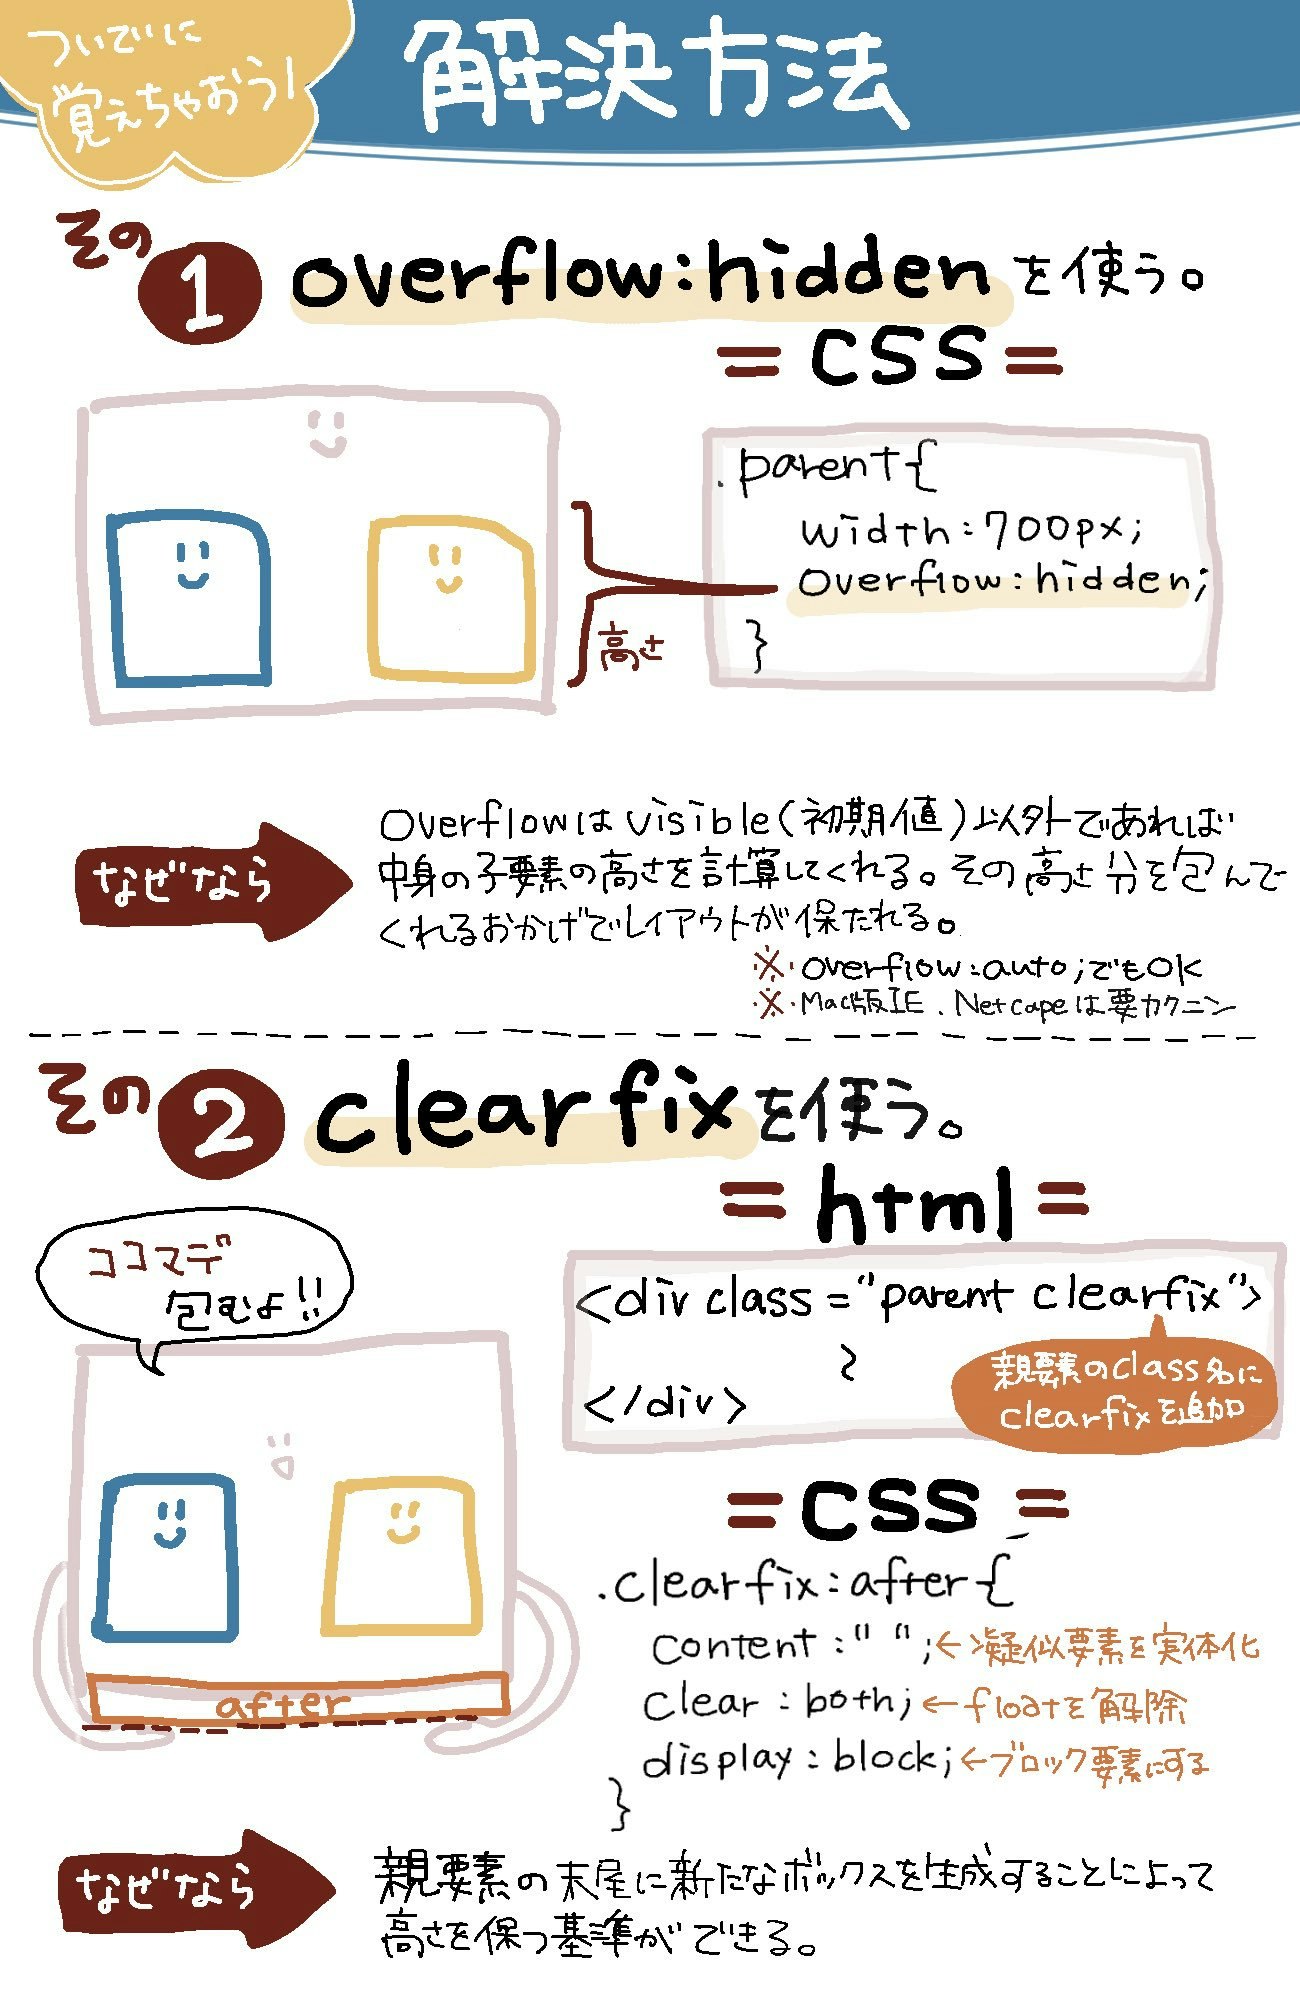 ついでに
覚えちゃおう!
解決方法
その1 overflow:hiddenを使う。
= CSS =
.parent{
width:700px;
overflow:hidden;
}
高さ
なぜなら
overflowはvisible(初期値)以外であれば
中身の子要素の高さを計算してくれる。その高さ分を包んで
くれるおかげでレイアウトが保たれる。
※・overflow:auto;でもOK
※・Mac版IE、Netcapeは要カクニン
その2 clearfixを使う。
= html =
ココマデ
包むよ!!
<div class="parent clearfix">
〜
</div>
親要素のclass名に
clearfixを追加
= CSS =
.clearfix:after{
content:" ";←疑似要素を実体化
clear:both;←floatを解除
display:block;←ブロック要素にする
}
after
なぜなら
親要素の末尾に新たなボックスを生成することによって
高さを保つ基準ができる。